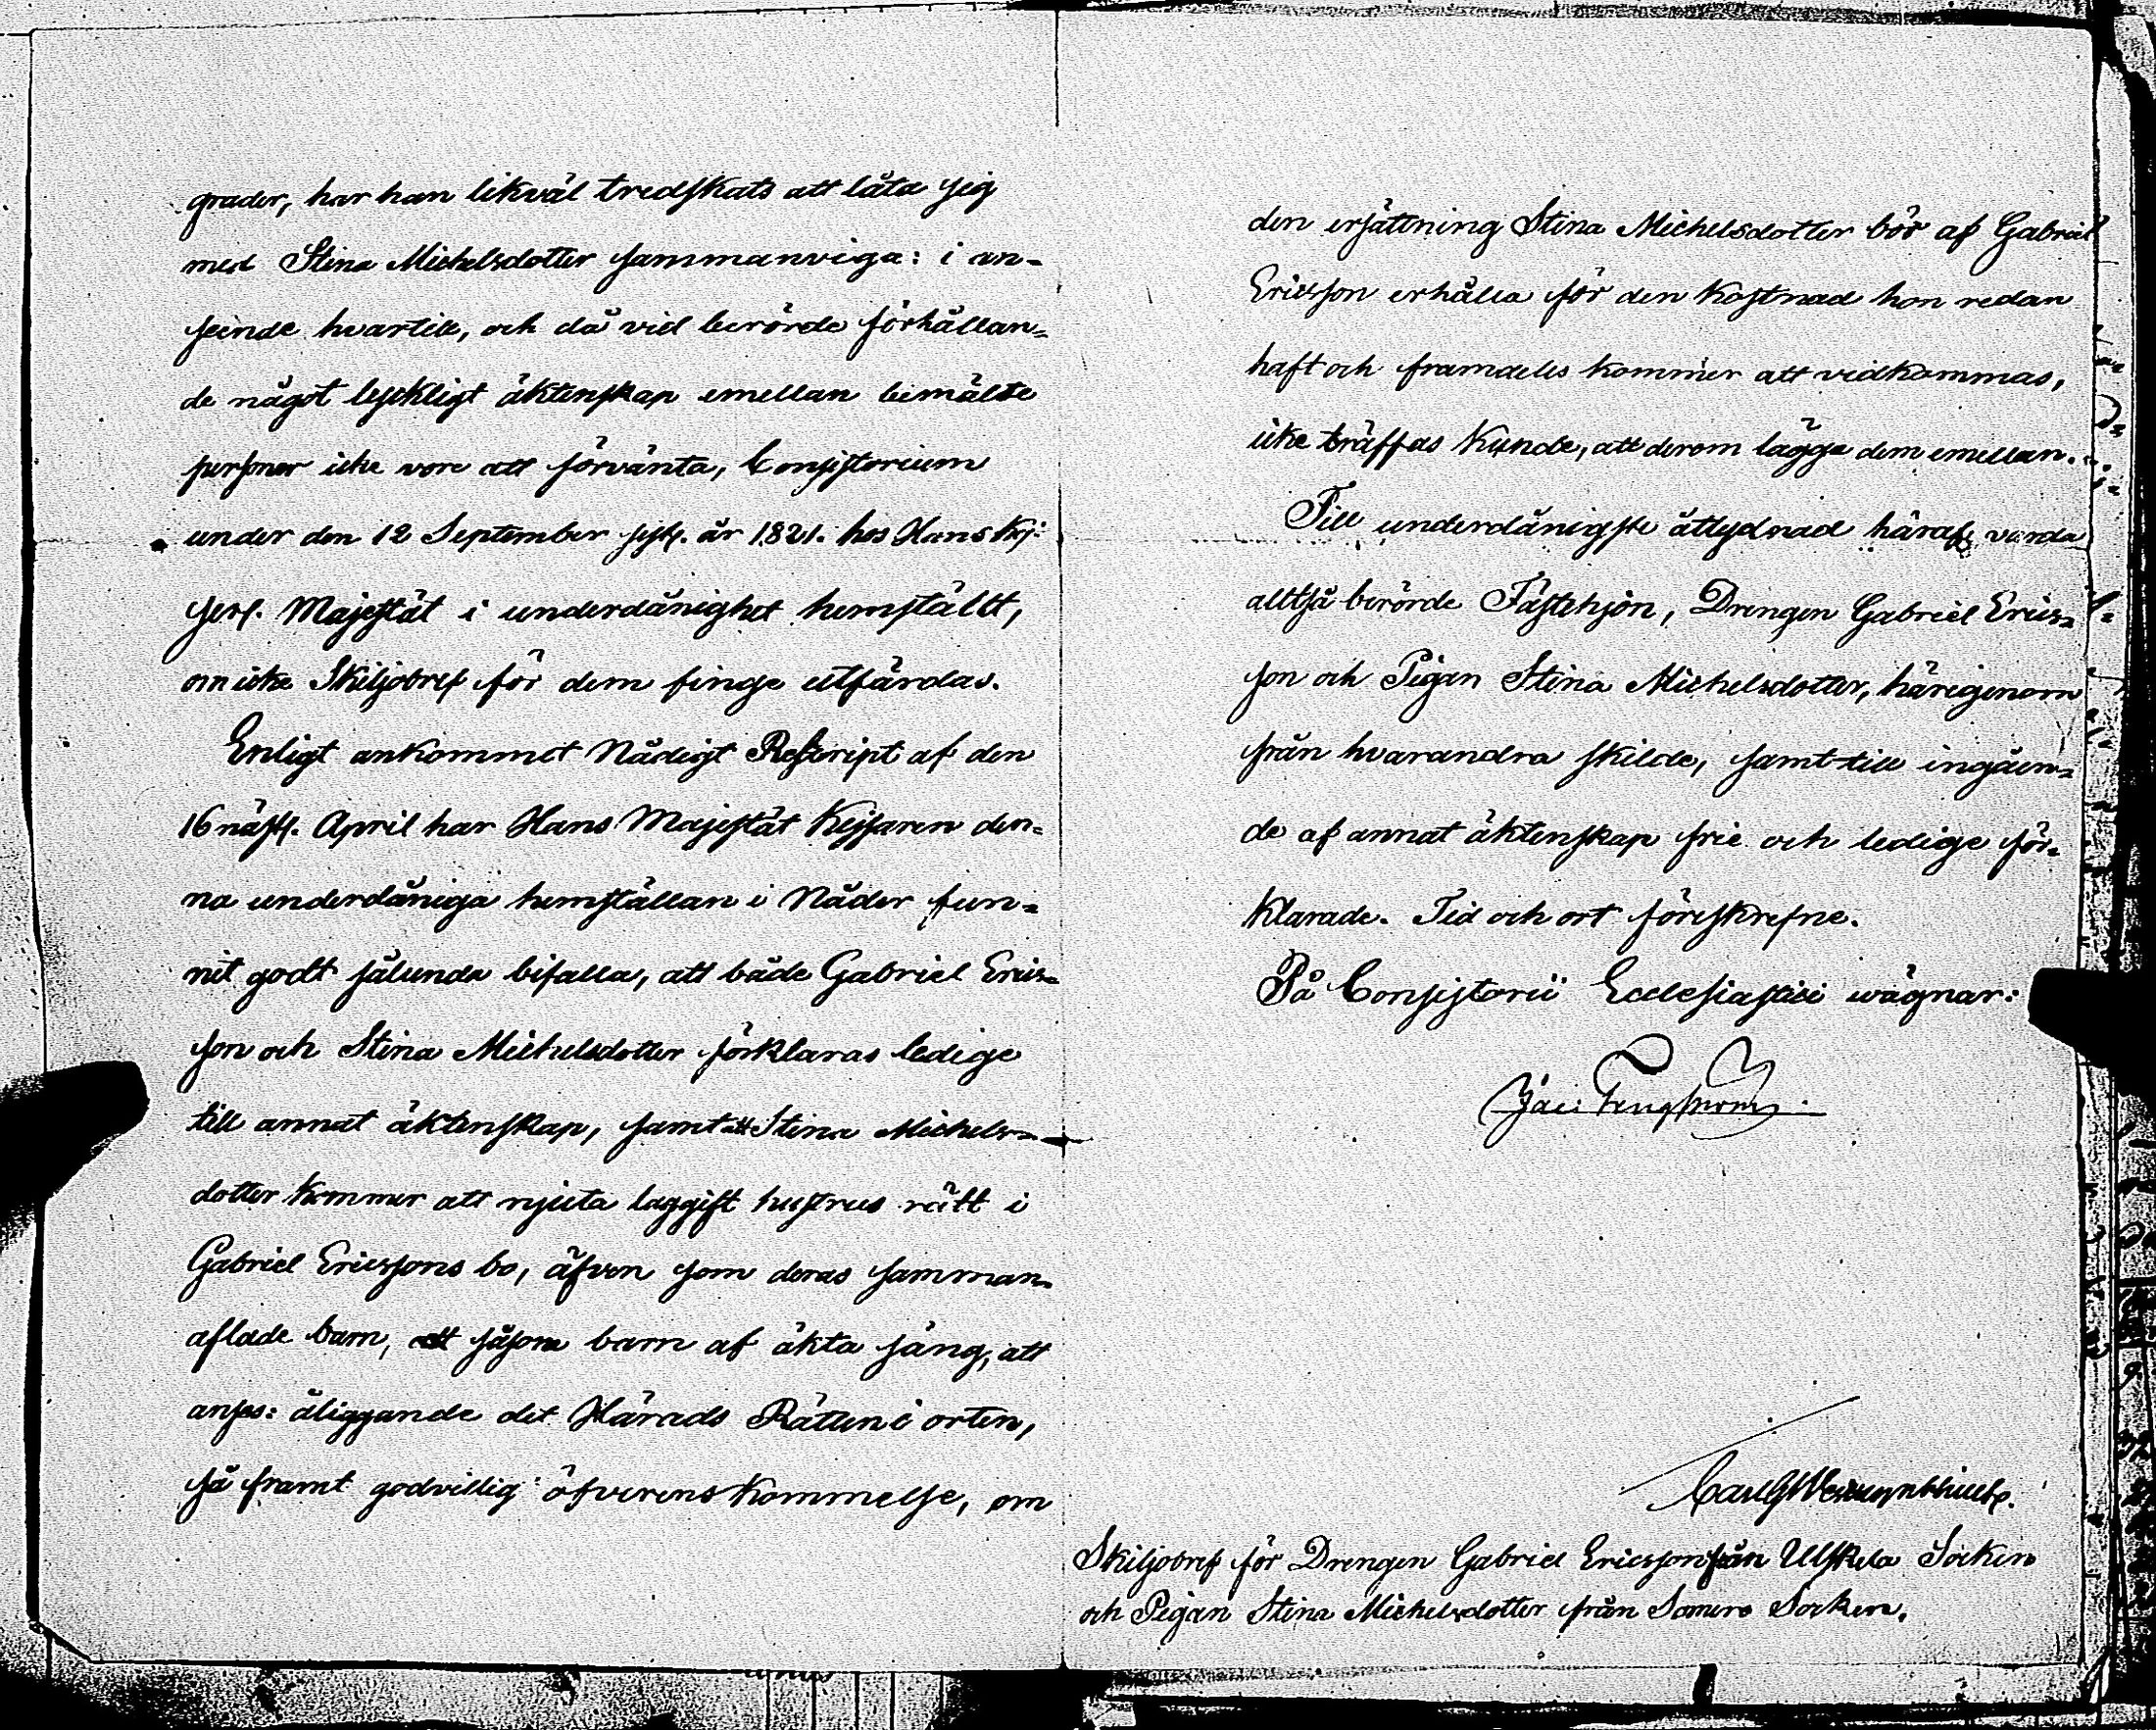 grader, har han likväl tredskats att låta sig
med Stina Michelsdotter sammanviga: i an-
seende hvartill, och då vid berörde förhållan-
de något lyckligt äktenskap emellan bemälte
personer icke vore att förvänta, Consistorium
under den 12 September sistl. år 1821. hos Hans Kej-
serl. Majestät i underdånighet hemstält,
om icke Skiljobref för dem finge utfärdas.
Enligt ankommet Nådigt Reskript af den
16 nästl. April har Hans Majestät Kejsaren den-
na underdåniga hemställan i Nåder fun-
nit godt sålunda bifalla, att både Gabriel Erics-
son och Stina Michelsdotter förklaras ledige
till annat äktenskap, samt att Stina Michels-
dotter kommer att njuta laggift hustrus rätt i
Gabriel Ericssons bo, äfven som deras samman-
aflade barn, såsom barn af äkta säng, att
anses: åliggande det Härads Rätten i orten,
så framt godvillig öfverenskommelse, om
den ersättning Stina Michelsdotter bör af Gabriel
Ericsson erhålla för den kostnad hon redan
haft och framdeles kommer att vidkommas,
icke träffas kunde, att derom lägga dem emellan.
Till underdånigste åtlydnad häraf varda
alltså berörde Fästehjon, Drengen Gabriel Erics-
son och Pigan Stina Michelsdotter, härigenom
från hvarandra skilde, samt till ingåen-
de af annat äktenskap frie och ledige för-
klarade. Tid och ort förskrefne.
På Consistorii Ecclesiastici wägnar:
Jac: Tengström
Skiljobref för Drengen Gabriel Ericsson från Ulskela Socken
och Pigan Stina Michelsdotter från Somero Socken.